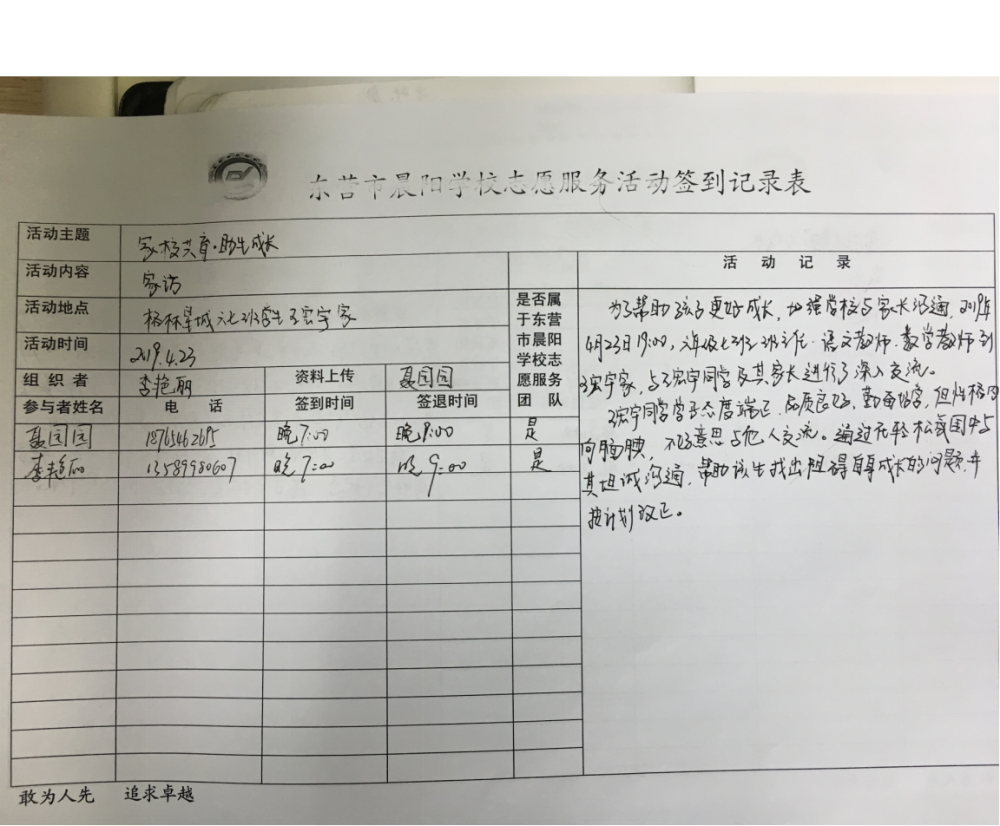 东营市晨阳学校志愿服务活动签到记录表
活动主题 家校共育·助生成长
活动内容 家访
活动地点 格林星城六七班学生 宏宇家
活动时间 2019.4.23
组织者 李艳丽 资料上传 聂园园
参与者姓名 电话 签到时间 签退时间
是否属
于东营
市晨阳
学校志
愿服务
团队
聂园园 18765462615 晚7:00 晚9:00 是
李艳丽 13589980607 晚7:00 晚9:00 是
活动记录
为了帮助孩子更好成长,加强学校与家长沟通,2019年
4月23日19:00,六年级七班班主任、语文教师、数学教师到
宏宇家,与 宏宇同学及其家长进行了深入交流。
宏宇同学学习态度端正,品质良好,勤奋好学,但性格内
向腼腆,不好意思与他人交流。通过在轻松氛围中与
其坦诚沟通,帮助该生找出阻碍自身成长的问题,并
按计划改正。
敢为人先 追求卓越